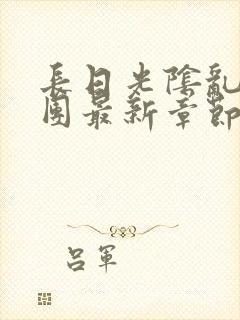 長日光陰亂
團最新章節
呂軍